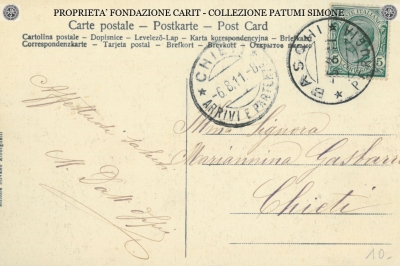 PROPRIETA' FONDAZIONE CARIT - COLLEZIONE PATUMI SIMONE
Carte postale - Postkarte - Post Card
Cartolina postale - Dopisnice - Levelező-Lap - Karta korespondencyjna - Briefkaart
Correspondenzkarte - Tarjeta postal - Brefkort - Brevkort
CHIETI
6.8.11
ARRIVI E PARTENZE
BASCHI
5
Affettuosi saluti
M.
Ill.ma Signora
Mariannina Gasbarri
Chieti
10-